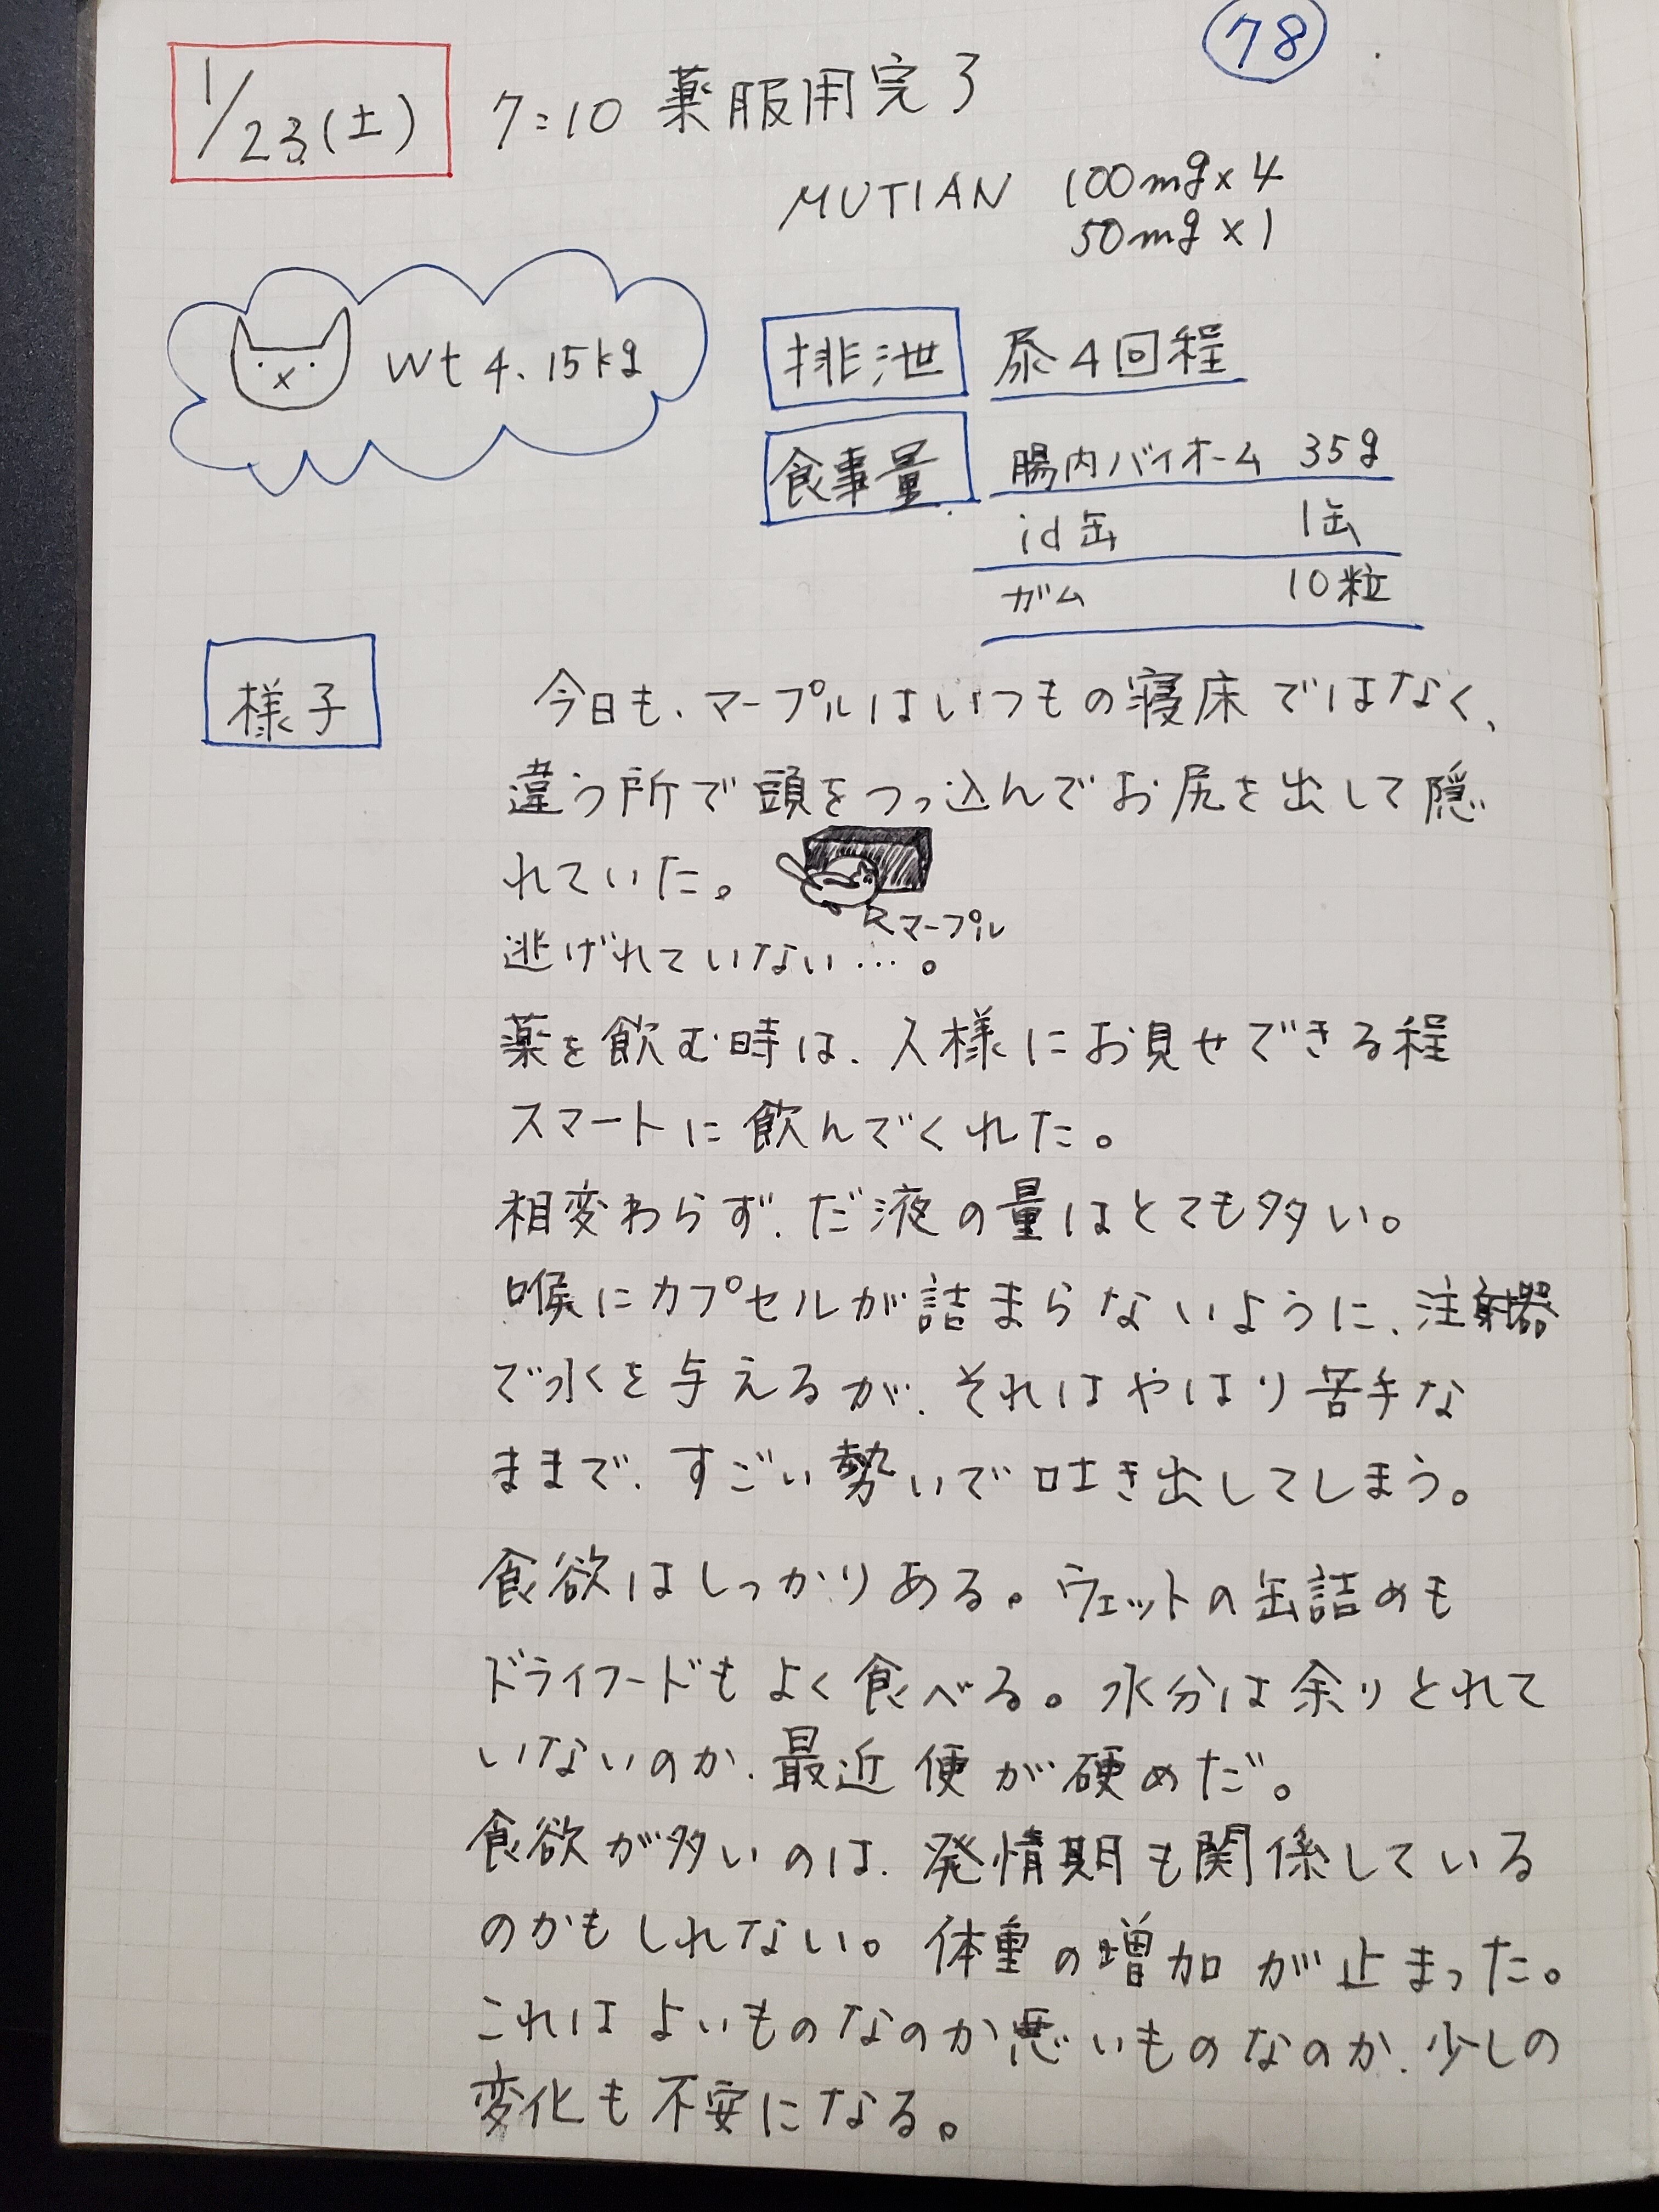 78
1/23(土) 7:10 薬服用完了
MUTIAN 100mg×4
50mg×1
Wt 4.15kg
排泄 尿4回程
食事量 腸内バイオーム 35g
id缶 1缶
ガム 10粒
様子 今日も、マープルはいつもの寝床ではなく、
違う所で頭をつっ込んでお尻を出して隠
れていた。
マープル
逃げれていない…。
薬を飲む時は、人様にお見せできる程
スマートに飲んでくれた。
相変わらず、だ液の量はとても多い。
喉にカプセルが詰まらないように、注射器
で水を与えるが、それはやはり苦手な
ままで、すごい勢いで吐き出してしまう。
食欲はしっかりある。ウェットの缶詰めも
ドライフードもよく食べる。水分は余りとれて
いないのか、最近便が硬めだ。
食欲が多いのは、発情期も関係している
のかもしれない。体重の増加が止まった。
これはよいものなのか悪いものなのか、少しの
変化も不安になる。